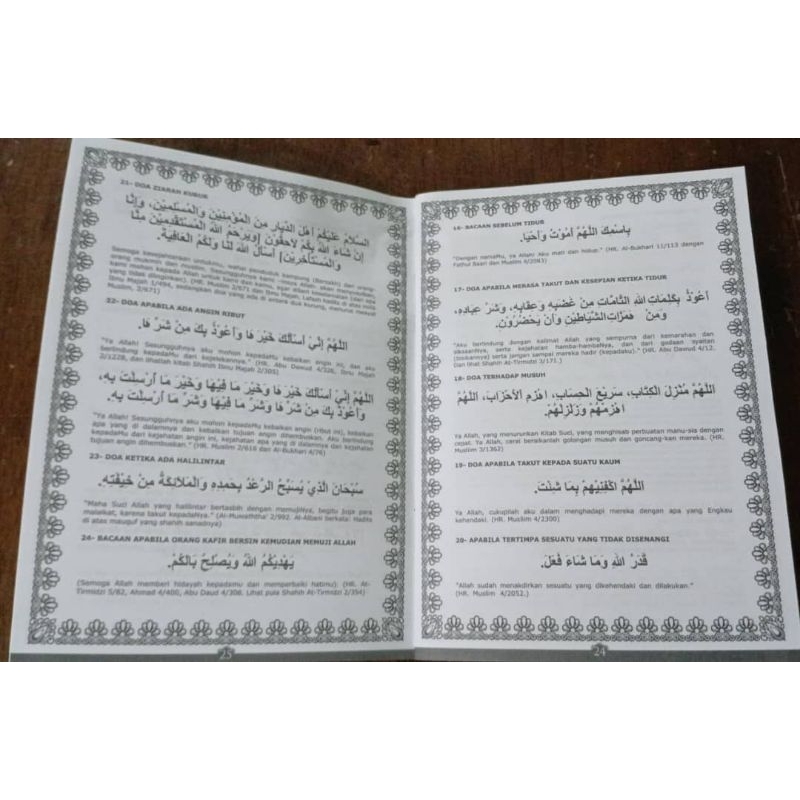 16- BACAAN SEBELUM TIDUR
بِاسْمِكَ اللَّهُمَّ أَمُوْتُ وَأَحْيَا.
"Dengan namaMu, Ya Allah! Aku mati dan hidup." (HR. Al-Bukhari 11/113 dengan
Fathul Baari dan Muslim 4/2083)
17- DOA APABILA MERASA TAKUT DAN KESEPIAN KETIKA TIDUR
أَعُوْذُ بِكَلِمَاتِ اللهِ التَّامَّاتِ مِنْ غَضَبِهِ وَعِقَابِهِ، وَشَرِّ عِبَادِهِ،
وَمِنْ هَمَزَاتِ الشَّيَاطِيْنِ وَأَنْ يَحْضُرُوْنِ.
"Aku berlindung dengan kalimat Allah yang sempurna dari kemarahan dan
siksaanNya, serta kejahatan hamba-hambaNya, dan dari godaan syaitan
(bisikannya) serta jangan sampai mereka hadir (kepadaku)." (HR. Abu Dawud 4/12.
Dan lihat Shahih At-Tirmidzi 3/171.)
18- DOA TERHADAP MUSUH
اللَّهُمَّ مُنْزِلَ الْكِتَابِ، سَرِيْعَ الْحِسَابِ، اهْزِمِ اْلأَحْزَابَ، اللَّهُمَّ
اهْزِمْهُمْ وَزَلْزِلْهُمْ.
Ya Allah, yang menurunkan Kitab Suci, yang menghisab perbuatan manu-sia dengan
cepat. Ya Allah, cerai beraikanlah golongan musuh dan goncang-kan mereka. (HR.
Muslim 3/1362)
19- DOA APABILA TAKUT KEPADA SUATU KAUM
اللَّهُمَّ اكْفِنِيْهِمْ بِمَا شِئْتَ.
Ya Allah, cukupilah aku dalam menghadapi mereka dengan apa yang Engkau
kehendaki. (HR. Muslim 4/2300)
20- APABILA TERTIMPA SESUATU YANG TIDAK DISENANGI
قَدَرُ اللهِ وَمَا شَاءَ فَعَلَ.
"Allah sudah menakdirkan sesuatu yang dikehendaki dan dilakukan."
(HR. Muslim 4/2052.)
24
21- DOA ZIARAH KUBUR
السَّلاَمُ عَلَيْكُمْ أَهْلَ الدِّيَارِ مِنَ الْمُؤْمِنِيْنَ وَالْمُسْلِمِيْنَ، وَإِنَّا
إِنْ شَاءَ اللهُ بِكُمْ لاَحِقُوْنَ [وَيَرْحَمُ اللهُ الْمُسْتَقْدِمِيْنَ مِنَّا
وَالْمُسْتَأْخِرِيْنَ] أَسْأَلُ اللهَ لَنَا وَلَكُمُ الْعَافِيَةَ.
Semoga kesejahteraan untukmu, wahai penduduk kampung (Barzakh) dari orang-
orang mukmin dan muslim. Sesungguhnya kami -insya Allah- akan menyusulkan,
kami mohon kepada Allah untuk kami dan kamu, agar diberi keselamatan (dari apa
yang tidak diinginkan). (HR. Muslim 2/671 dan Ibnu Majah. Lafazh hadis di atas
Ibnu Majah 1/494, sedangkan doa yang ada di antara dua kurung, menurut riwayat
Muslim, 2/671)
22- DOA APABILA ADA ANGIN RIBUT
اللَّهُمَّ إِنِّيْ أَسْأَلُكَ خَيْرَ هَا وَأَعُوْذُ بِكَ مِنْ شَرِّ هَا.
"Ya Allah! Sesungguhnya aku mohon kepadaMu kebaikan angin ini, dan aku
berlindung kepadaMu dari kejelekannya." (HR. Abu Dawud 4/326, Ibnu Majah
2/1228, dan lihatlah kitab Shahih Ibnu Majah 2/305)
اللَّهُمَّ إِنِّيْ أَسْأَلُكَ خَيْرَ هَا وَخَيْرَ مَا فِيْهَا وَخَيْرَ مَا أُرْسِلَتْ بِهِ،
وَأَعُوْذُ بِكَ مِنْ شَرِّ هَا وَشَرِّ مَا فِيْهَا وَشَرِّ مَا أُرْسِلَتْ بِهِ.
"Ya Allah! Sesungguhnya aku mohon kepadaMu kebaikan angin (ribut ini), kebaikan
apa yang di dalamnya dan kebaikan tujuan angin dihembuskan. Aku berlindung
kepadaMu dari kejahatan angin ini, kejahatan apa yang di dalamnya dan kejahatan
tujuan angin dihembuskan." (HR. Muslim 2/616 dan Al-Bukhari 4/76)
23- DOA KETIKA ADA HALILINTAR
سُبْحَانَ الَّذِيْ يُسَبِّحُ الرَّعْدُ بِحَمْدِهِ وَالْمَلاَئِكَةُ مِنْ خِيْفَتِهِ.
"Maha Suci Allah yang halilintar bertasbih dengan memujiNya, begitu juga para
malaikat, karena takut kepadaNya." (Al-Muwaththa' 2/992. Al-Albani berkata: Hadits
di atas mauquf yang shahih sanadnya)
24- BACAAN APABILA ORANG KAFIR BERSIN KEMUDIAN MEMUJI ALLAH
يَهْدِيْكُمُ اللهُ وَيُصْلِحُ بَالَكُمْ.
(Semoga Allah memberi hidayah kepadamu dan memperbaiki hatimu). (HR. At-
Tirmidzi 5/82, Ahmad 4/400, Abu Daud 4/308. Lihat pula Shahih At-Tirmidzi 2/354)
25